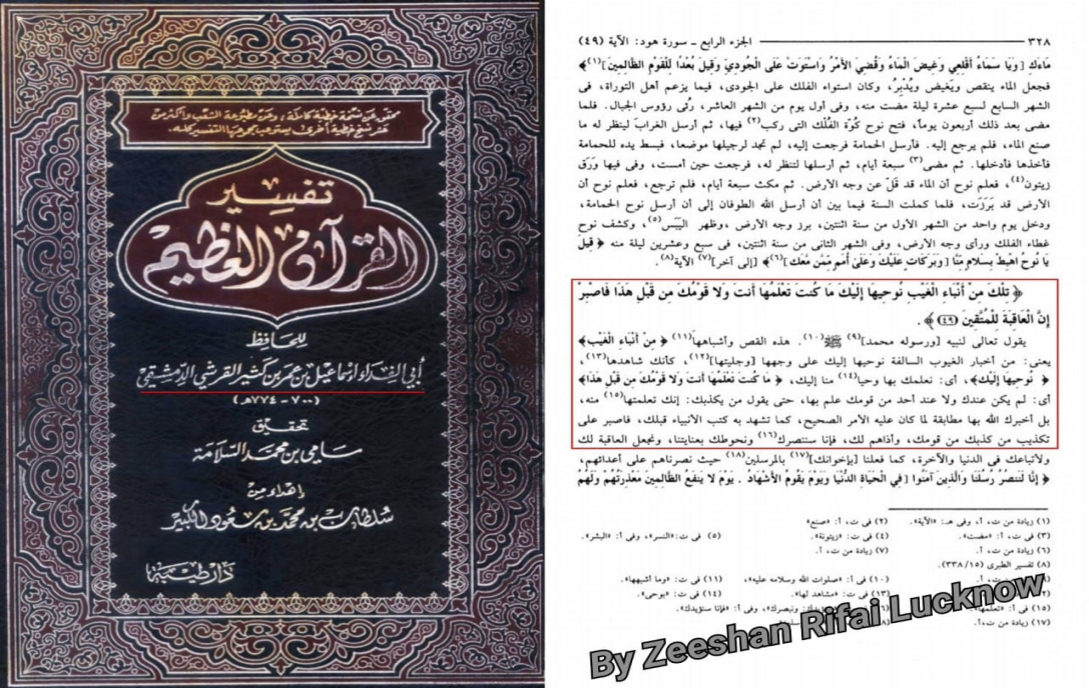 محقق عن نسخة خطية كاملة، وعن مطبوعة الشعب وأكثر من
عشر نسخ خطية أخرى يستوعب مجموعها التفسير كله.
تفسير
القرآن العظيم
للحافظ
أبي الفداء إسماعيل بن عمر بن كثير القرشي الدمشقي
(٧٠٠ - ٧٧٤هـ)
تحقيق
سامي بن محمد السلامة
إهداء من
سلطان بن محمد بن سعود الكبير
دار طيبة
٣٢٨ الجزء الرابع - سورة هود: الآية (٤٩)
مَاءَكِ [وَيَا سَمَاءُ أَقْلِعِي وَغِيضَ الْمَاءُ وَقُضِيَ الأَمْرُ وَاسْتَوَتْ عَلَى الْجُودِيِّ وَقِيلَ بُعْدًا لِلْقَوْمِ الظَّالِمِينَ](١)﴾
فجعل الماء ينقص ويَغيض ويُدْبِرُ، وكان استواء الفلك على الجودى، فيما يزعم أهل التوراة، فى
الشهر السابع لسبع عشرة ليلة مضت منه، وفى أول يوم من الشهر العاشر، رُئى رؤوس الجبال. فلما
مضى بعد ذلك أربعون يوماً، فتح نوح كُوّة الفُلْك التى ركب(٢) فيها، ثم أرسل الغرابَ لينظر له ما
صنع الماء، فلم يرجع إليه. فأرسل الحمامة فرجعت إليه، لم تجد لرجليها موضعا، فبسط يده للحمامة
فأخذها فأدخلها. ثم مضى(٣) سبعة أيام، ثم أرسلها لتنظر له، فرجعت حين أمست، وفى فيها وَرَق
زيتون(٤)، فعلم نوح أن الماء قد قَلّ عن وجه الأرض. ثم مكث سبعة أيام، فلم ترجع، فعلم نوح أن
الأرض قد بَرَزَت، فلما كملت السنة فيما بين أن أرسل الله الطوفان إلى أن أرسل نوح الحمامة،
ودخل يوم واحد من الشهر الأول من سنة اثنتين، برز وجه الأرض، وظهر اليَبَس(٥)، وكشف نوح
غطاء الفلك ورأى وجه الأرض، وفى الشهر الثانى من سنة اثنتين، فى سبع وعشرين ليلة منه ﴿ قِيلَ
يَا نُوحُ اهْبِطْ بِسَلامٍ مِّنَّا [وَبَرَكَاتٍ عَلَيْكَ وَعَلَىٰ أُمَمٍ مِّمَّن مَّعَكَ](٦)﴾ [إلى آخر](٧) الآية(٨).
﴿ تِلْكَ مِنْ أَنْبَاءِ الْغَيْبِ نُوحِيهَا إِلَيْكَ مَا كُنتَ تَعْلَمُهَا أَنتَ وَلا قَوْمُكَ مِن قَبْلِ هَذَا فَاصْبِرْ
إِنَّ الْعَاقِبَةَ لِلْمُتَّقِينَ (٤٩)﴾ .
يقول تعالى لنبيه [ورسوله محمد](٩) ﷺ(١٠). هذه القصص وأشباهها(١١) ﴿ مِنْ أَنْبَاءِ الْغَيْبِ﴾
يعنى: من أخبار الغيوب السالفة نوحيها إليك على وجهها [وجليتها](١٢)، كأنك شاهدها(١٣)،
﴿ نُوحِيهَا إِلَيْكَ﴾، أى: نعلمك بها وحيا(١٤) منا إليك، ﴿ مَا كُنتَ تَعْلَمُهَا أَنتَ وَلا قَوْمُكَ مِن قَبْلِ هَذَا﴾
أى: لم يكن عندك ولا عند أحد من قومك علم بها، حتى يقول من يكذبك: إنك تعلمتها(١٥) منه،
بل أخبرك الله بها مطابقة لما كان عليه الأمر الصحيح، كما تشهد به كتب الأنبياء قبلك، فاصبر على
تكذيب من كذبك من قومك، وأذاهم لك، فإنا سننصرك(١٦) ونحوطك بعنايتنا، ونجعل العاقبة لك
ولأتباعك فى الدنيا والآخرة، كما فعلنا [بإخوانك](١٧) بالمرسلين(١٨) حيث نصرناهم على أعدائهم،
﴿ إِنَّا لَنَنصُرُ رُسُلَنَا وَالَّذِينَ آمَنُوا [فِي الْحَيَاةِ الدُّنْيَا وَيَوْمَ يَقُومُ الأَشْهَادُ . يَوْمَ لا يَنفَعُ الظَّالِمِينَ مَعْذِرَتُهُمْ وَلَهُمُ
(١) زيادة من ت، أ، وفى هـ: «الآية». (٢) فى ت، أ: «صنع»
(٣) فى ت، أ: «مضت». (٤) فى ت: «زيتونة». (٥) فى ت: «النسر»، وفى أ: «البشر».
(٦) زيادة من ت، أ. (٧) زيادة من ت، أ.
(٨) تفسير الطبرى (٣٣٨/١٥).
من ت، أ. (١٠) فى أ: «صلوات الله وسلامه عليه»، (١١) فى ت: «وما أشبهها».
(١٣) فى ت: «مشاهد لها». (١٤) فى ت: «يوحى».
(١٥) فى أ: «تعلمها» ونبصرك»، وفى أ: «فإنا سنؤيدك».
(١٧) زيادة من ت، أ.
By Zeeshan Rifai Lucknow